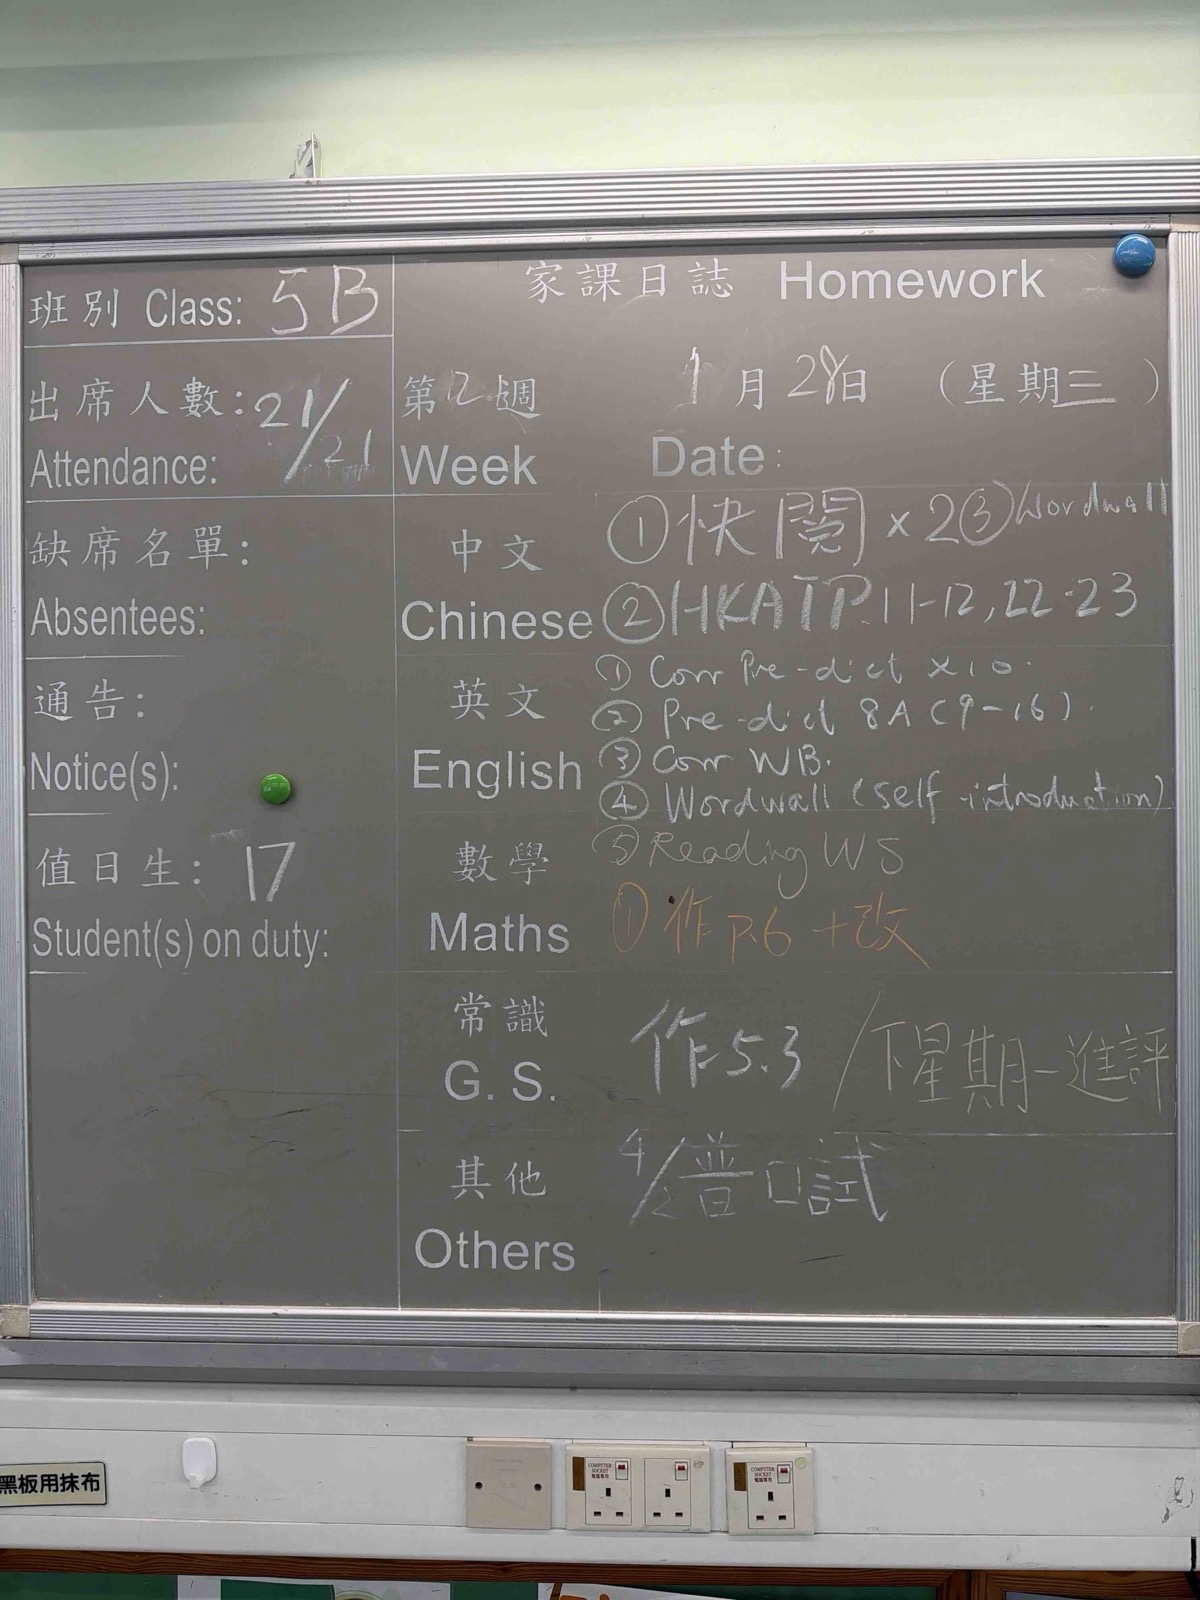 家課日誌 Homework
班別 Class: 5B
出席人數: 21/21
Attendance:
第12週 1月28日 (星期三)
Week Date:
缺席名單:
Absentees:
通告:
Notice(s):
值日生: 17
Student(s) on duty:
中文 ①快閱×2 ③Wordwall
Chinese ②HKAT P.11-12, 22-23
英文 ① Corr Pre-dict ×10.
② Pre-dict 8A (9-16).
English ③ Corr WB.
④ Wordwall (self-introduction)
數學 ⑤ Reading WS
Maths ①作P.6+改
常識
G. S. 作5.3 / 下星期一進評
其他 4/2普口試
Others
黑板用抹布
COMPUTER SOCKET
電腦專用
COMPUTER SOCKET
電腦專用